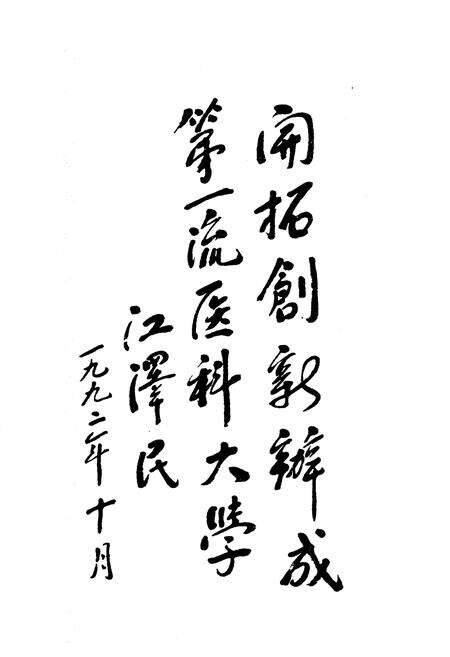 開拓創新辦成
第一流医科大学
江澤民
一九九二年十月